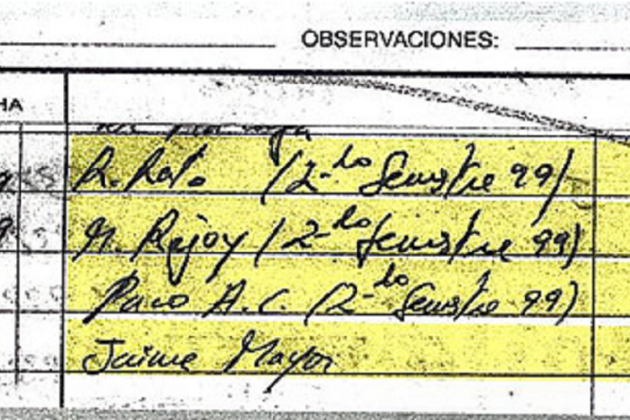 OBSERVACIONES:
HA
R. Rato (2-do Semestre 99)
M. Rajoy (2-do Semestre 99)
Paco A.C. (2-do Semestre 99)
Jaime Mayor